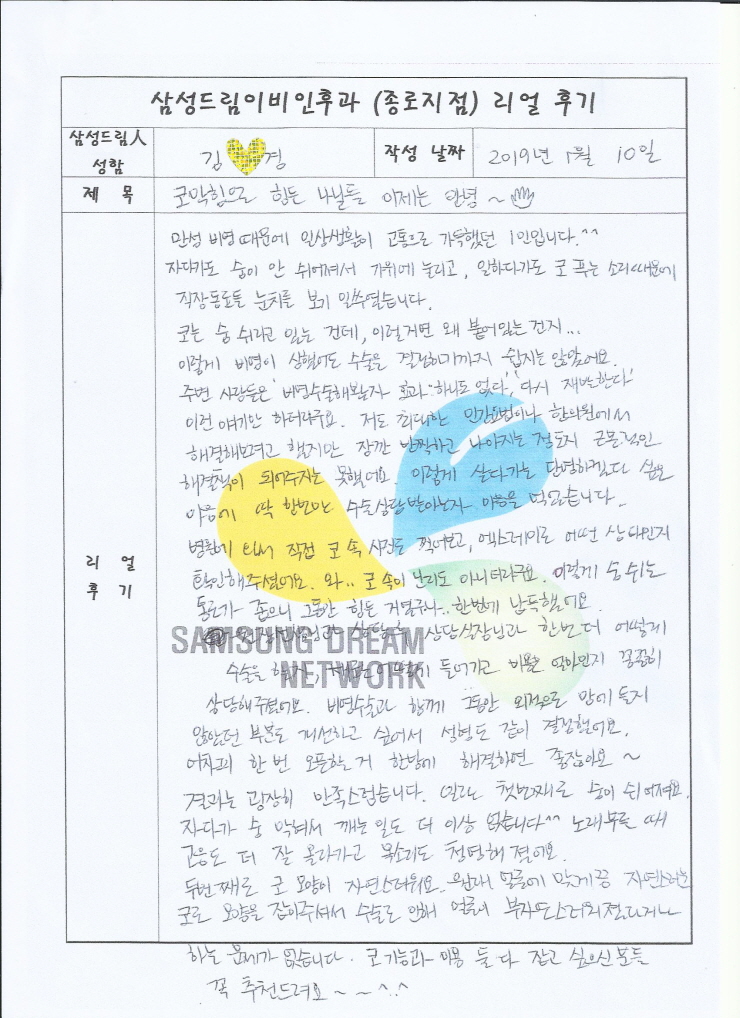 삼성드림이비인후과 (종로지점) 리얼 후기
삼성드림人 성함
김 경
작성 날짜
2019년 1월 10일
제 목
코막힘으로 힘든 나날들 이제는 안녕 ~
리 얼 후 기
만성 비염 때문에 일상생활이 고통으로 가득했던 1인입니다.^^
자다가도 숨이 안 쉬어져서 가위에 눌리고, 일하다가도 코 푸는 소리 때문에
직장동료들 눈치를 보기 일쑤였습니다.
코는 숨 쉬라고 있는 건데, 이럴거면 왜 붙어있는 건지...
이렇게 비염이 심했어도 수술을 결정하기까지 쉽지는 않았어요.
주변 사람들은 '비염수술해봤자 효과 하나도 없다', '다시 재발한다'
이런 얘기만 하더라구요. 저도 최대한 민간요법이나 한의원에서
해결해보려고 했지만 잠깐 반짝하고 나아지는 정도지 근본적인
해결책이 되어주지는 못했어요. 이렇게 살다가는 단명하겠다 싶은
마음에 딱 한번만 수술상담 받아보자 마음을 먹었습니다.
병원에 와서 직접 코 속 사진도 찍어보고, 엑스레이로 어떤 상태인지
확인해주셨어요. 와.. 코 속이 난리도 아니더라구요. 이렇게 숨 쉬는
통로가 좁으니 그동안 힘든 거였구나.. 한번에 납득했어요.
상담 후 상담실장님과 한번 더 어떻게
수술을 하는지, 들어가고 비용은 얼마인지 꼼꼼히
상담해주셨어요. 비염수술과 함께 그동안 외적으로 맘에 들지
않았던 부분도 개선하고 싶어서 성형도 같이 결정했어요.
어차피 한 번 오픈하는 거 한방에 해결하면 좋잖아요 ~
결과는 굉장히 만족스럽습니다. 일단 첫번째로 숨이 쉬어져요.
자다가 숨 막혀서 깨는 일도 더 이상 없습니다^^ 노래부를 때
고음도 더 잘 올라가고 목소리도 청명해졌어요.
두번째로 코 모양이 자연스러워요. 원래 얼굴에 맞게끔 자연스러운
코로 모양을 잡아주셔서 수술로 인해 얼굴이 부자연스러워졌다거나
하는 문제가 없습니다. 코 기능과 미용 둘 다 잡고 싶으신 분들
꼭 추천드려요 ~ ~ ^.^
SAMSUNG DREAM
NETWORK